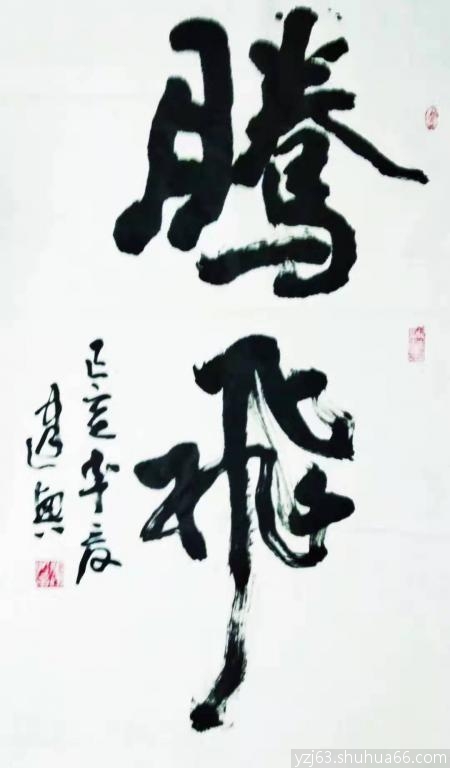 腾飛
己亥年夏
建興
yzj63.shuhua66.com